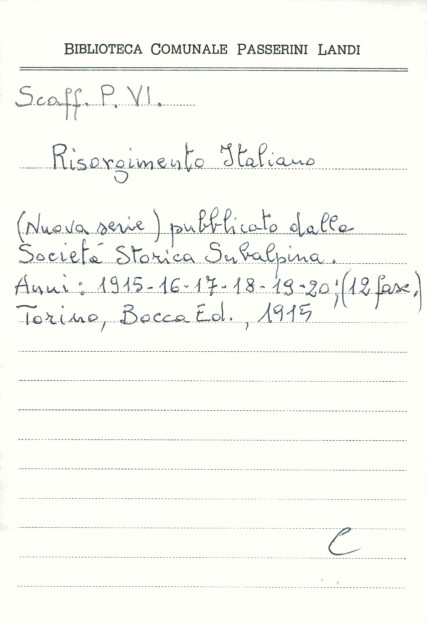 BIBLIOTECA COMUNALE PASSERINI LANDI
Scaff. P. VI.
Risorgimento Italiano
(Nuova serie) pubblicato dalla
Società Storica Subalpina.
Anni: 1915-16-17-18-19-20; (12 fasc.)
Torino, Bocca Ed., 1915
C